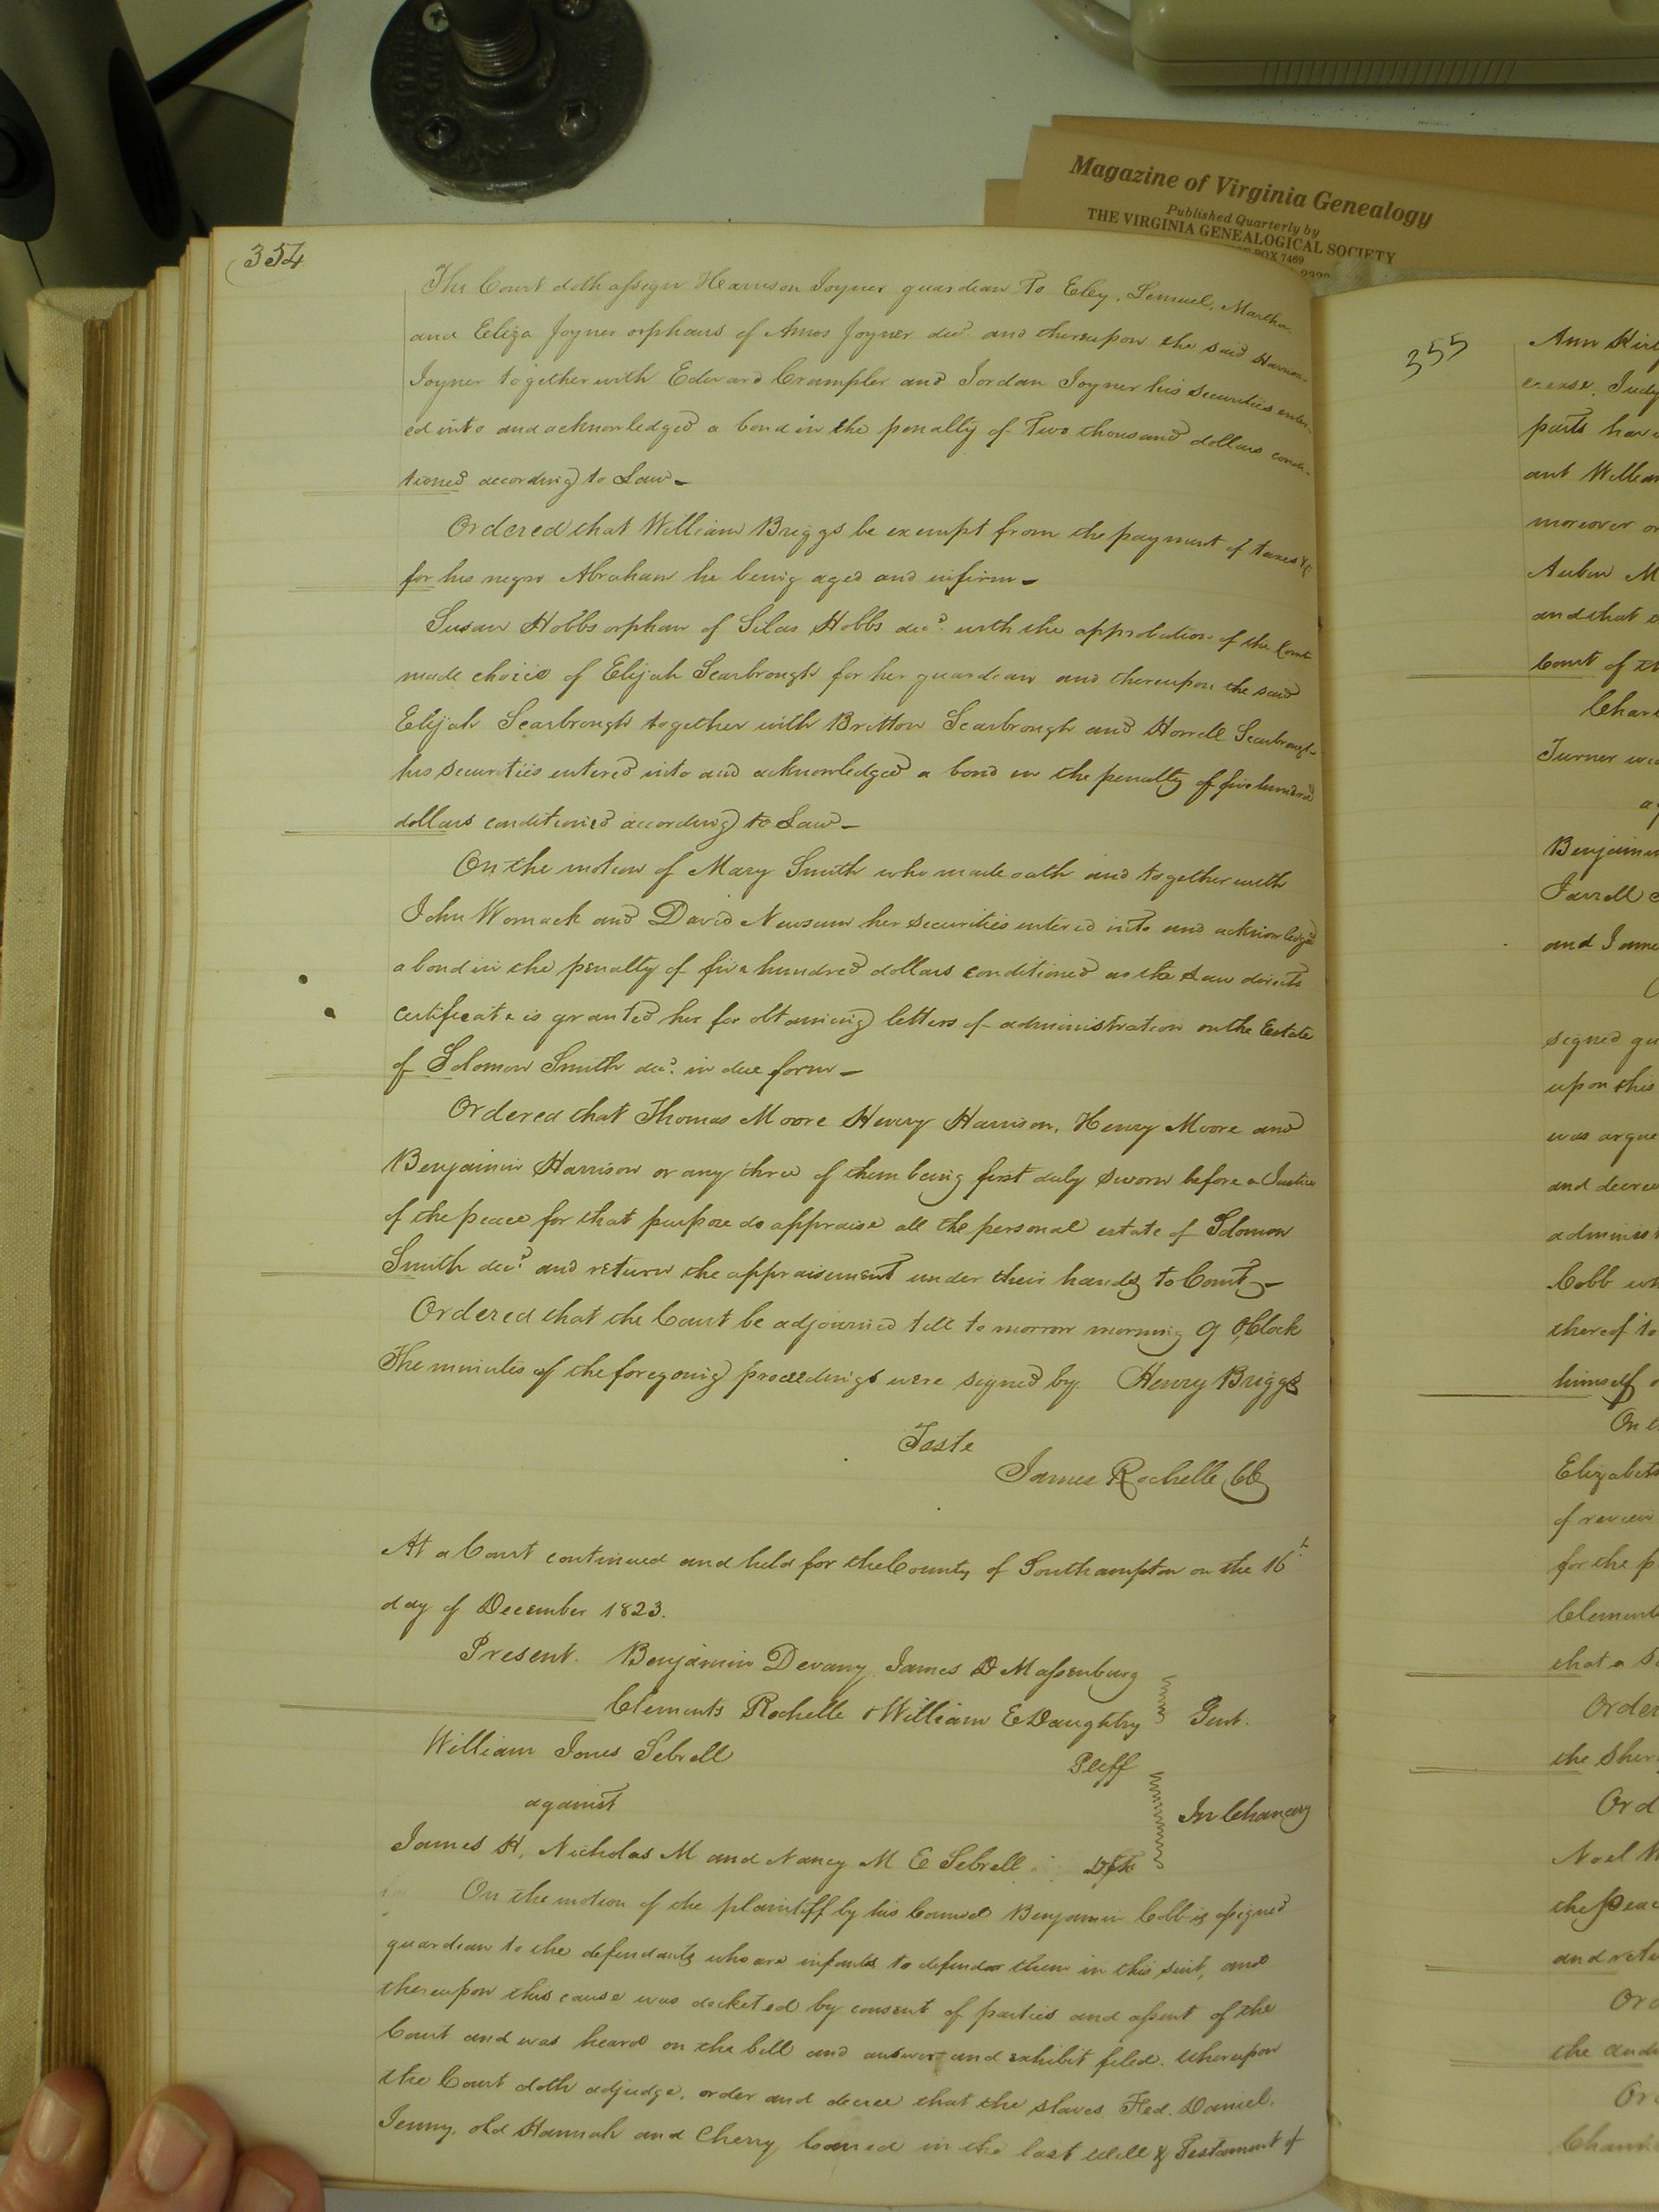 Magazine of Virginia Genealogy
Published Quarterly by
THE VIRGINIA GENEALOGICAL SOCIETY
BOX 7469
354
The Court doth assign Harrison Joyner guardian To Eley, Lemuel, Martha
and Eliza Joyner orphans of Amos Joyner decd. and thereupon the said Harrison
Joyner together with Edward Crumpler and Jordan Joyner his securities enter-
ed into and acknowledged a bond in the penalty of Two thousand dollars condi-
tioned according to Law
Ordered that William Briggs be exempt from the payment of taxes &c
for his negro Abraham he being aged and infirm
Susan Hobbs orphan of Silas Hobbs decd. with the approbation of the Court
made choice of Elijah Scarbrough for her guardian and thereupon the said
Elijah Scarbrough together with Britton Scarbrough and Horrell Scarbrough
his securities entered into and acknowledged a bond in the penalty of five hundred
dollars conditioned according to Law
On the motion of Mary Smith who made oath and together with
John Womack and David Newsum her securities entered into and acknowledged
a bond in the penalty of five hundred dollars conditioned as the Law directs
certificate is granted her for obtaining letters of administration on the Estate
of Solomon Smith decd. in due form
Ordered that Thomas Moore Henry Harrison, Henry Moore and
Benjamin Harrison or any three of them being first duly sworn before a Justice
of the peace for that purpose do appraise all the personal estate of Solomon
Smith decd. and return the appraisement under their hands to Court
Ordered that the Court be adjourned till to morrow morning 9 OClock
The minutes of the foregoing proceedings were signed by. Henry Briggs
Teste
James Rochelle CC
At a Court continued and held for the County of Southampton on the 16th
day of December 1823.
Present. Benjamin Devany, James D Massenburg
Clements Rochelle & William E Daughtry Gent.
William Jones Sebrell Pltff
against In Chancery
James H, Nicholas M and Nancy M E Sebrell Dfts
On the motion of the plaintiff by his Counsel Benjamin Cobb is assigned
guardian to the defendants who are infants to defend them in this suit, and
thereupon this cause was docketed by consent of parties and assent of the
Court and was heard on the bill and answer and exhibit filed. Whereupon
the Court doth adjudge, order and decree that the slaves Fed. Daniel,
Jenny, old Hannah and Cherry loaned in the last Will & Testament of
355
Ann
parts
ant
moreover
and that
Court of
Turner
Benjamin
Farrell
and
signed
upon this
was
and
Cobb
thereof to
himself
On
of review
for the
that a
Order
the
Ord
Noel
the
Ord
the
Or